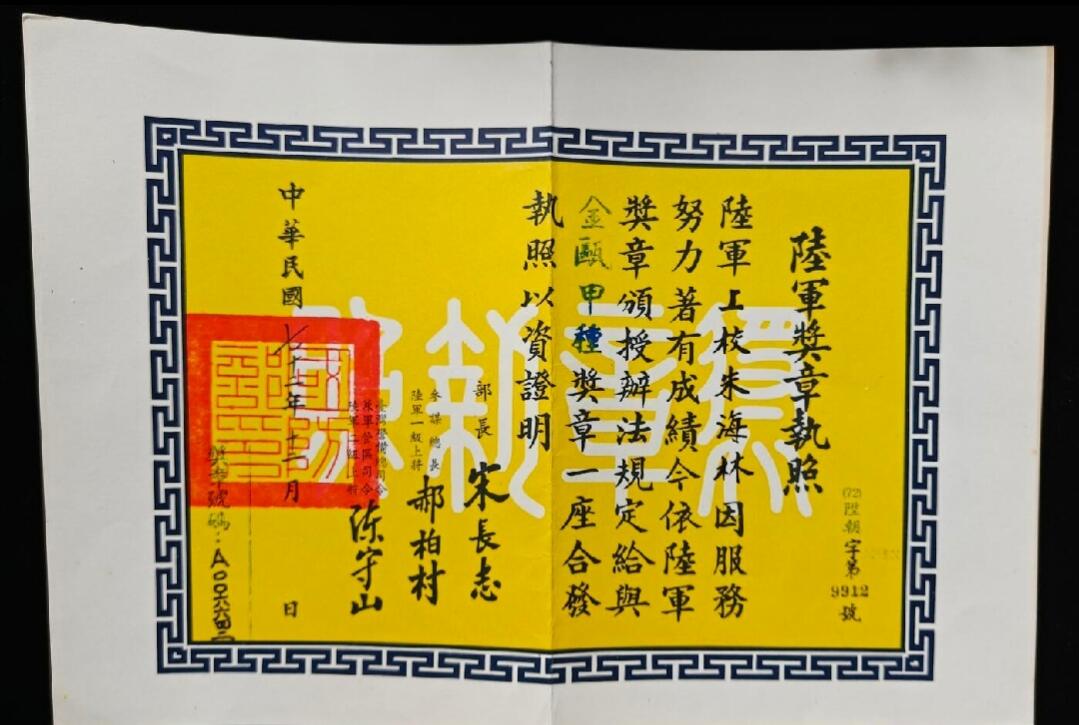 陸軍獎章執照
(72)陞朝字第9912號
陸軍上校朱海林因服務
努力著有成績今依陸軍
獎章頒授辦法規定給與
金甌甲種獎章一座合發
執照以資證明
部長 宋長志
參謀總長
陸軍一級上將 郝柏村
臺灣警備總司令
兼軍管區司令
陸軍二級上將 陳守山
中華民國七十二年十二月 日
獎章號碼：A00六六四二